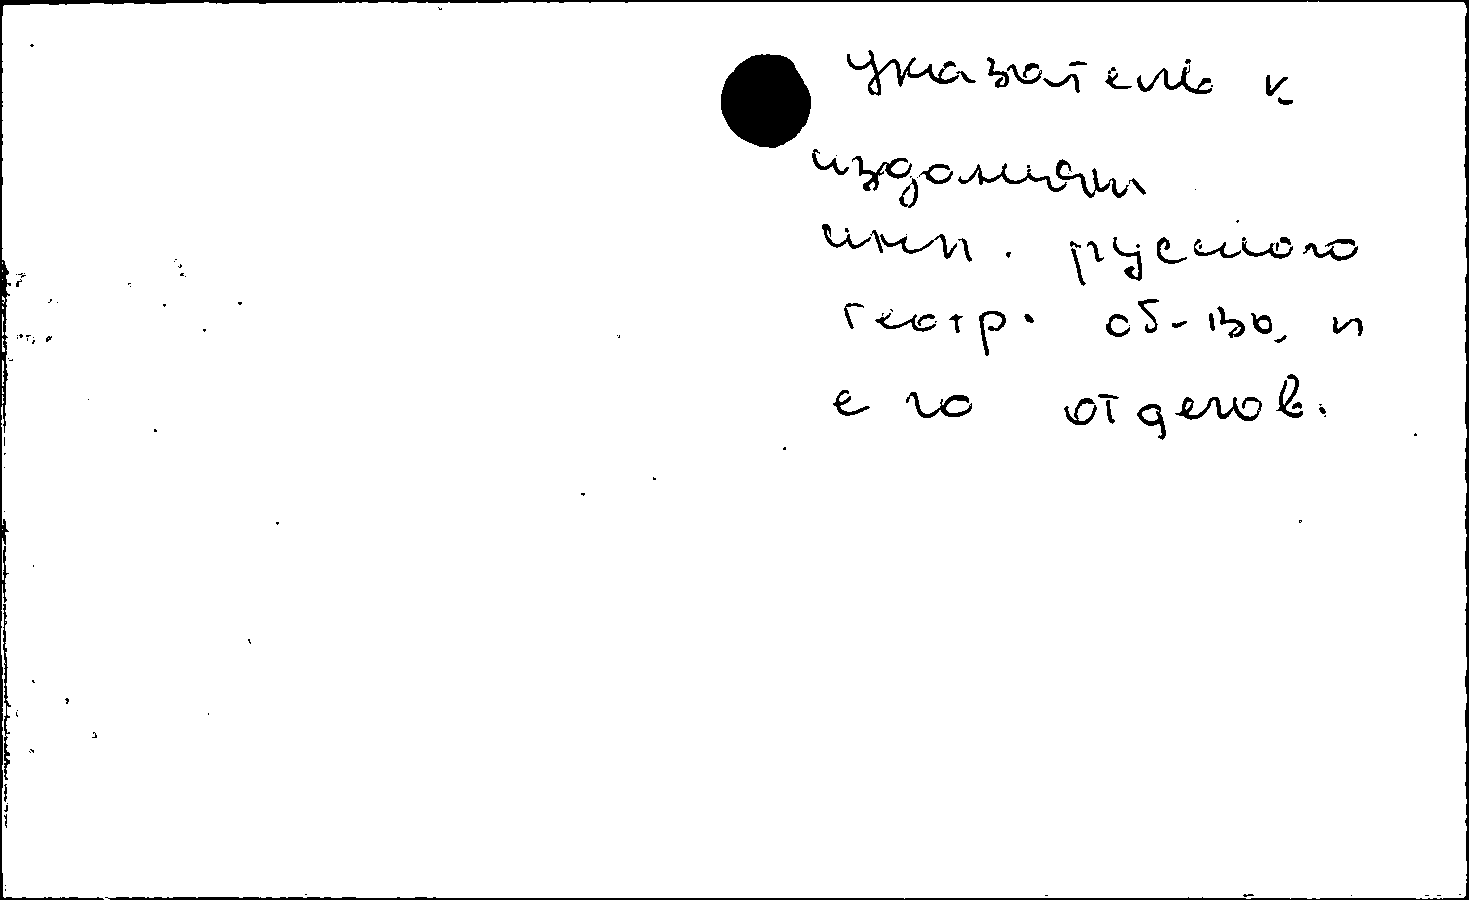 указатель к
изданиям
имп. русского
геогр. об-ва, и
его отделов.